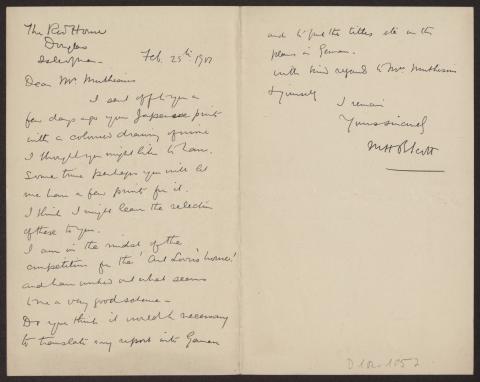 The Red House
Douglas
Isle of Man. Feb. 25th 1901
Dear Mr Muthesius
I sent off to you a
few days ago your Japanese print
with a coloured drawing of mine
I thought you might like to have.
Some time perhaps you will let
me have a few prints for it.
I think I might leave the selection
of these to you.
I am in the midst of the
competition for the 'Art Lover's house'
and have worked out what seems
to me a very good scheme -
Do you think it would be necessary
to translate any report into German
and to put the titles etc on the
plans in German.
with kind regards to Mrs Muthesius
& yourself
I remain
Yours sincerely
M H B Scott